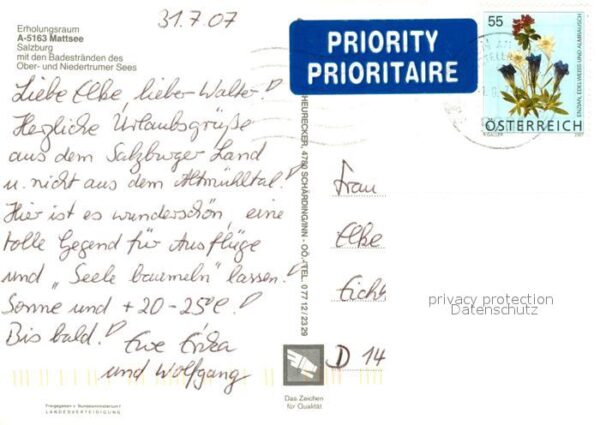 31.7.07
Erholungsraum
A-5163 Mattsee
Salzburg
mit den Badestränden des
Ober- und Niedertrumer Sees
Liebe Elke, lieber Walter!
Herzliche Urlaubsgrüße
aus dem Salzburger Land
u. nicht aus dem Altmühltal!
Hier ist es wunderschön, eine
tolle Gegend für Ausflüge
und "Seele baumeln" lassen!
Sonne und +20-25°C!
Bis bald! Eure Erika
und Wolfgang
Freigegeben v. Bundesministerium f.
LANDESVERTEIDIGUNG
HEURECKER, 4780 SCHÄRDING/INN - OÖ. - TEL. 0 77 12 / 23 29
Das Zeichen
für Qualität
PRIORITY
PRIORITAIRE
55
ENZIAN, EDELWEISS UND ALMRAUSCH
ÖSTERREICH
2007
Frau
Elke
Eich
D 14
privacy protection
Datenschutz